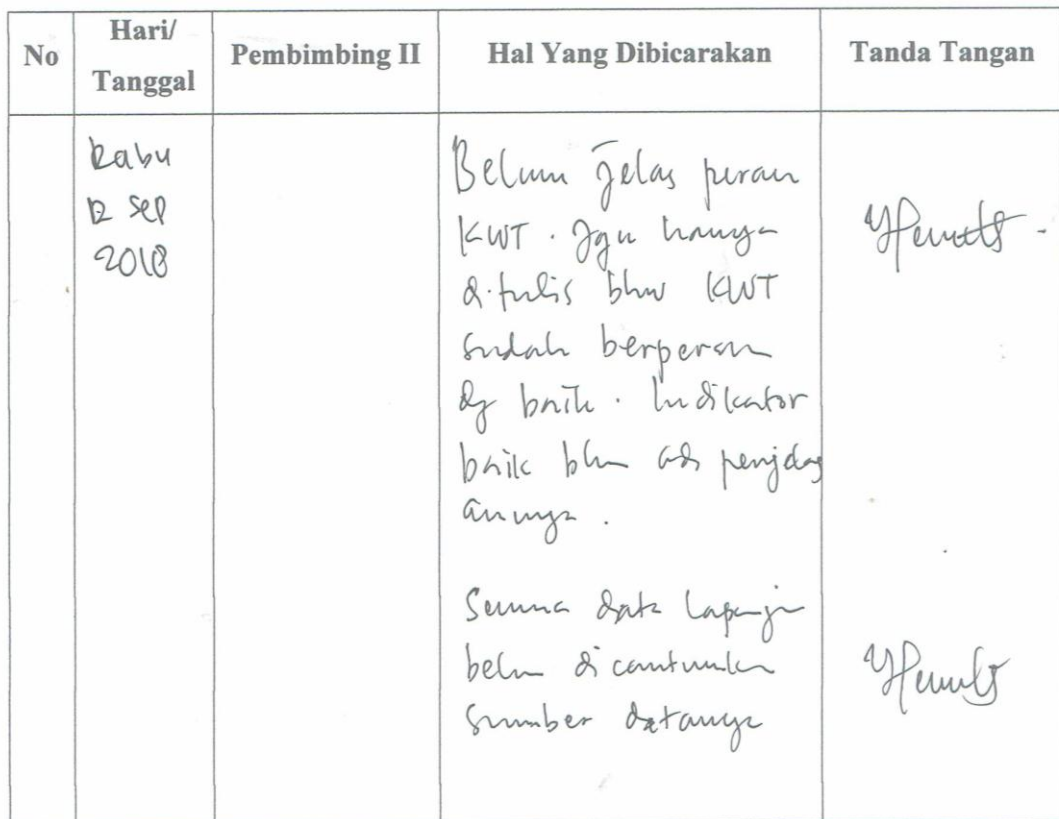 No Hari/ Tanggal Pembimbing II Hal Yang Dibicarakan Tanda Tangan
Rabu
12 Sep
2018
Belum jelas peran
KWT. Jgn hanya
ditulis bhw KWT
sudah berperan
dg baik. Indikator
baik blm ada penjelas
annya.
Semua data lapangan
belum dicantumkan
sumber datanya